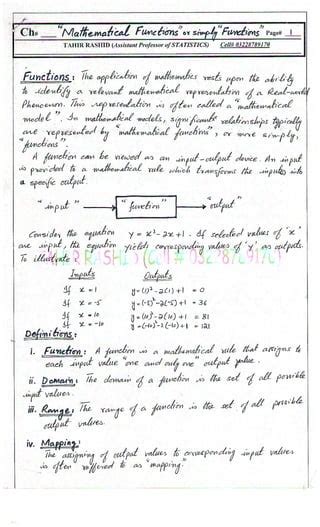 Ch# "Mathematical Functions" or simply "Functions" Page# 1
TAHIR RASHID (Assistant Professor of STATISTICS) Cell# 03228789170
Functions: The application of mathematics rests upon the ability
to identify a relevant mathematical representation of a Real-world
Phenomenon. This representation is often called a "mathematical
model". In mathematical models, significant relationships typically
are represented by "mathematical functions", or more simply,
"functions".
A function can be viewed as an input-output device. An input
is provided to a mathematical rule which transforms the input into
a specific output.
"input" "function" "output"
Consider the equation y = x²-2x+1. If selected values of 'x'
are input, the equation yields corresponding values of 'y' as outputs.
To illustrate
RASHID (Cell # 03228789170)
Inputs Outputs
If x = 1 y = (1)²-2(1)+1 = 0
If x = -5 y = (-5)²-2(-5)+1 = 36
If x = 10 y = (10)²-2(10)+1 = 81
If x = -10 y = (-10)²-2(-10)+1 = 121
Definitions:
i. Function: A function is a mathematical rule that assigns to
each input value one and only one output value.
ii. Domain: The domain of a function is the set of all possible
input values.
iii. Range: The range of a function is the set of all possible
output values.
iv. Mapping:
The assigning of output values to corresponding input values
is often reffered to as "mapping".